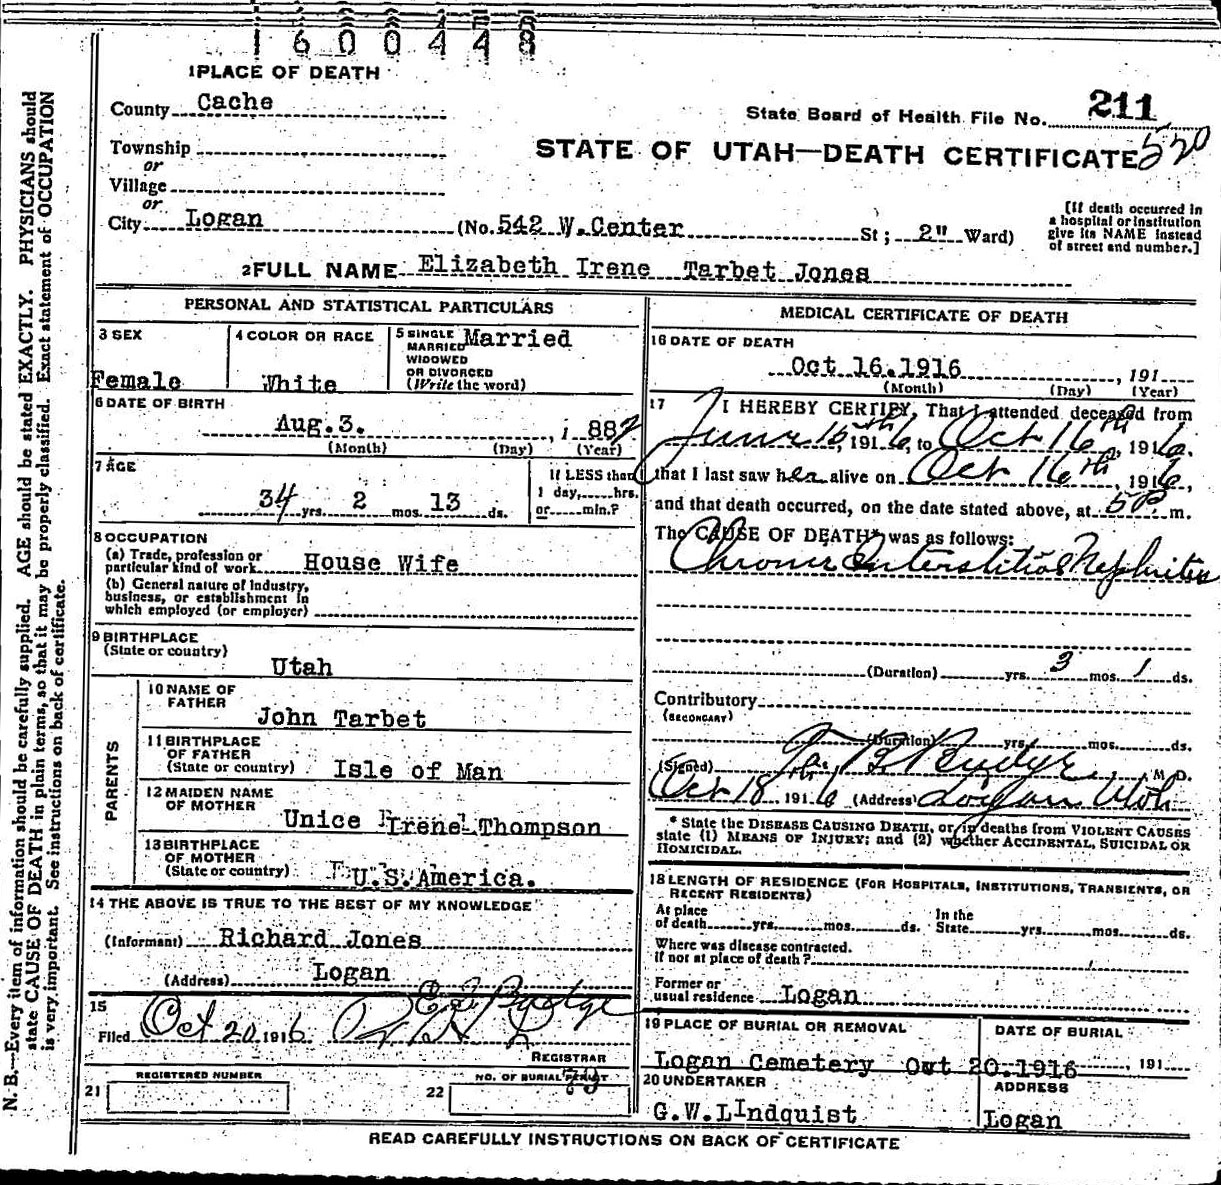 1600448
1 PLACE OF DEATH
County Cache
State Board of Health File No. 211
Township
or
STATE OF UTAH—DEATH CERTIFICATE 520
Village
or
City Logan (No. 542 W. Center St; 2" Ward)
[If death occurred in
a hospital or institution
give its NAME instead
of street and number.]
2 FULL NAME Elizabeth Irene Tarbet Jones
PERSONAL AND STATISTICAL PARTICULARS
3 SEX
Female
4 COLOR OR RACE
White
5 SINGLE Married
MARRIED
WIDOWED
OR DIVORCED
(Write the word)
6 DATE OF BIRTH
Aug. 3. , 1 882
(Month) (Day) (Year)
7 AGE
34 yrs. 2 mos. 13 ds.
If LESS than
1 day, hrs.
or min.?
8 OCCUPATION
(a) Trade, profession or
particular kind of work House Wife
(b) General nature of industry,
business, or establishment in
which employed (or employer)
9 BIRTHPLACE
(State or country)
Utah
PARENTS
10 NAME OF
FATHER
John Tarbet
11 BIRTHPLACE
OF FATHER
(State or country) Isle of Man
12 MAIDEN NAME
OF MOTHER
Unice Irene Thompson
13 BIRTHPLACE
OF MOTHER
(State or country) U.S. America.
14 THE ABOVE IS TRUE TO THE BEST OF MY KNOWLEDGE
(Informant) Richard Jones
(Address) Logan
15
Filed Oct 20 1916 Budge
REGISTRAR
REGISTERED NUMBER
21
NO. OF BURIAL PERMIT
22
MEDICAL CERTIFICATE OF DEATH
16 DATE OF DEATH
Oct 16. 1916 , 191
(Month) (Day) (Year)
17 I HEREBY CERTIFY, That I attended deceased from
June 16th, 1916, to Oct 16th, 1916.
that I last saw her alive on Oct 16th, 1916,
and that death occurred, on the date stated above, at 5 P. m.
The CAUSE OF DEATH* was as follows:
Chronic Interstitial Nephritis
(Duration) yrs. 3 mos. 1 ds.
Contributory
(SECONDARY)
(Duration) yrs. mos. ds.
(Signed) Budge, M. D.
Oct 18th 1916 (Address) Logan Utah
* State the DISEASE CAUSING DEATH, or, in deaths from VIOLENT CAUSES
state (1) MEANS OF INJURY; and (2) whether ACCIDENTAL, SUICIDAL OR
HOMICIDAL.
18 LENGTH OF RESIDENCE (FOR HOSPITALS, INSTITUTIONS, TRANSIENTS, OR
RECENT RESIDENTS)
At place
of death yrs. mos. ds.
In the
State yrs. mos. ds.
Where was disease contracted.
if not at place of death?
Former or
usual residence Logan
19 PLACE OF BURIAL OR REMOVAL
Logan Cemetery
DATE OF BURIAL
Oct 20. 1916 , 191
20 UNDERTAKER
G. W. LIndquist
ADDRESS
Logan
READ CAREFULLY INSTRUCTIONS ON BACK OF CERTIFICATE
N. B.—Every item of information should be carefully supplied. AGE should be stated EXACTLY. PHYSICIANS should
state CAUSE OF DEATH in plain terms, so that it may be properly classified. Exact statement of OCCUPATION
is very important. See instructions on back of certificate.